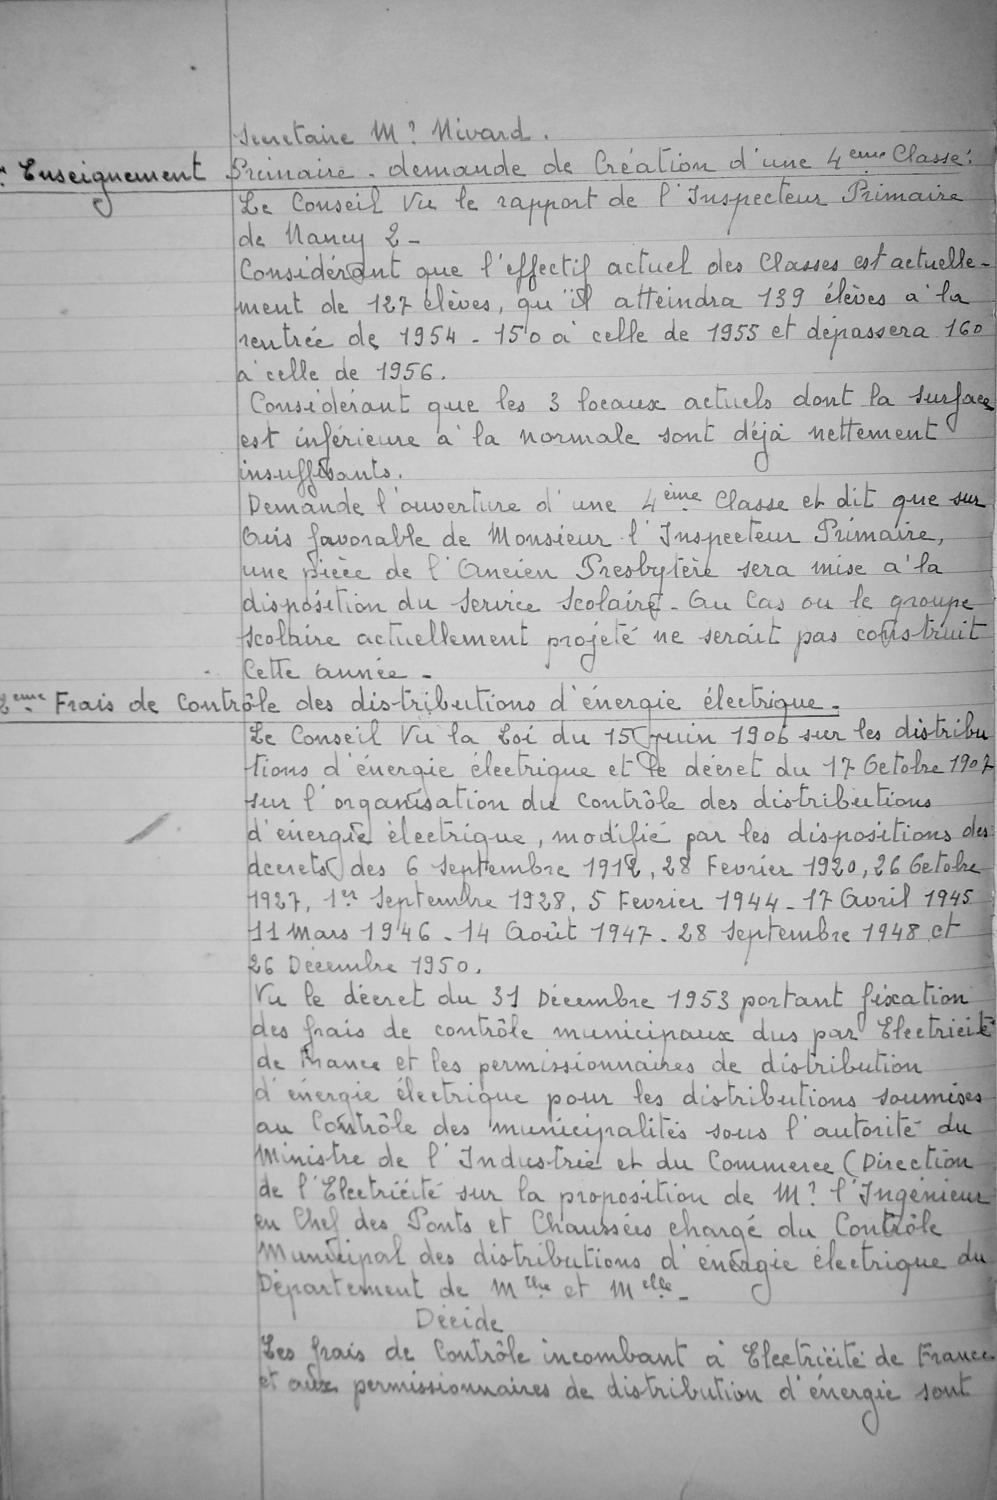 Secretaire Mr Nivard.
Enseignement Primaire - demande de Création d'une 4eme Classe:
Le Conseil Vu le rapport de l'Inspecteur Primaire
de Nancy 2 -
Considérant que l'effectif actuel des Classes est actuelle-
ment de 127 élèves, qu'il atteindra 139 élèves à la
rentrée de 1954 - 150 à celle de 1955 et dépassera 160
à celle de 1956.
Considérant que les 3 locaux actuels dont la surface
est inférieure à la normale sont déjà nettement
insuffisants.
Demande l'ouverture d'une 4ème Classe et dit que sur
Avis favorable de Monsieur l'Inspecteur Primaire,
une pièce de l'Ancien Presbytère sera mise à la
disposition du Service Scolaire - Au Cas ou le groupe
Scolaire actuellement projeté ne serait pas construit
Cette année -
2eme Frais de Contrôle des distributions d'énergie électrique -
Le Conseil Vu la Loi du 15 Juin 1906 sur les distribu
tions d'énergie électrique et le décret du 17 Octobre 1907
sur l'organisation du Contrôle des distributions
d'énergie électrique, modifié par les dispositions des
dcerets des 6 Septembre 1912, 28 Fevrier 1920, 26 Octobre
1927, 1er Septembre 1928, 5 Fevrier 1944 - 17 Avril 1945
11 Mars 1946 - 14 Août 1947 - 28 Septembre 1948 et
26 Décembre 1950.
Vu le décret du 31 Décembre 1953 portant fixation
des frais de contrôle municipaux dus par Electricité
de France et les permissionnaires de distribution
d'énergie électrique pour les distributions soumises
au Contrôle des municipalités sous l'autorité du
Ministre de l'Industrie et du Commerce (Direction
de l'Electricité sur la proposition de Mr l'Ingénieur
en Chef des Ponts et Chaussées chargé du Contrôle
Municipal des distributions d'énergie électrique du
Département de Mthe et Melle -
Décide
Les frais de Contrôle incombant à Electricité de France
et aux permissionnaires de distribution d'énergie sont